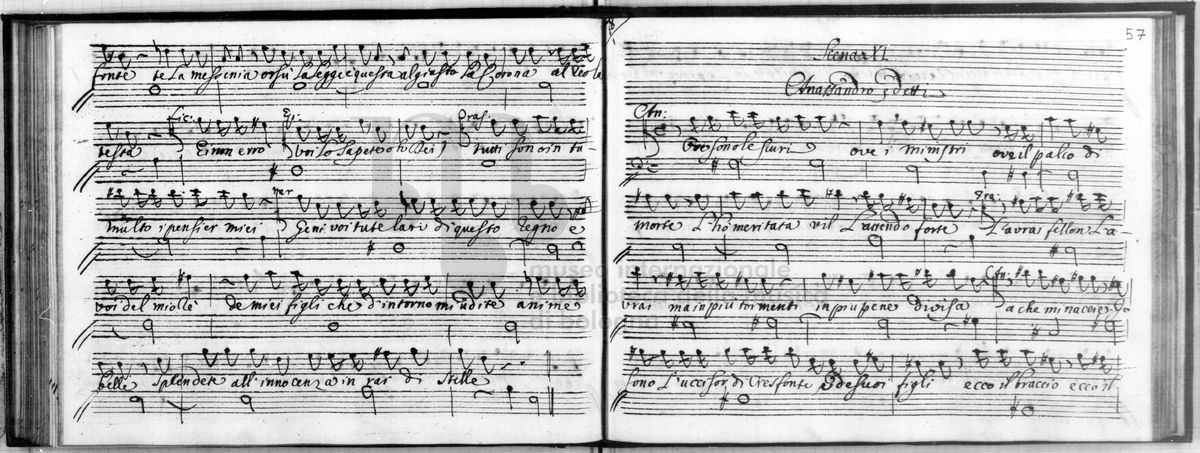 fonte te La messenia orsù La legge è questa al giusto La Corona al Reo la
testa
Lic:
Ei non errò
Ep:
voi Lo sapete o tu Dei
Tras:
tutti son' ō in tu-
multo i pensier miei
Mer
Geni voi tutelari di questo Regno e
voi del mio Rè de miei figli che d'intorno mi udite anime
belle splendete all'innocenza in rai di stelle
57
Scena XI
Anassandro e detti
An:
ove sono le scuri ove i ministri ove il palco di
morte L'hò meritata vil L'attendo forte
Tra:
L'avrai fellon L'a-
vrai ma in più tormenti in più pene divisa
An:
a che minacce Io
sono L'uccisor di Cresfonte e de suoi figli ecco il braccio ecco il
museo internazionale
di bologna